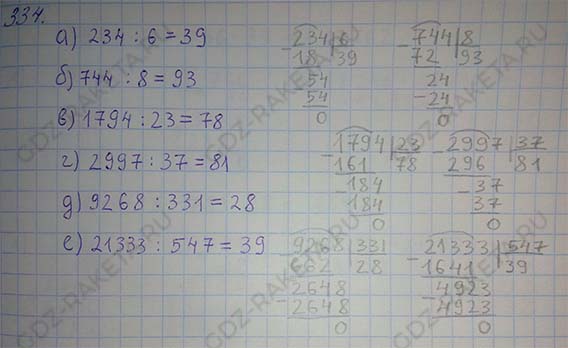 334.
а) 234 : 6 = 39
б) 744 : 8 = 93
в) 1794 : 23 = 78
г) 2997 : 37 = 81
д) 9268 : 331 = 28
е) 21333 : 547 = 39
- 234 | 6
18 | 39
54
54
0
- 744 | 8
72 | 93
24
- 24
0
- 1794 | 23
161 | 78
- 184
184
0
- 2997 | 37
296 | 81
- 37
37
0
- 9268 | 331
662 | 28
- 2648
2648
0
- 21333 | 547
1641 | 39
- 4923
4923
0
GDZ-RAKETA.RU